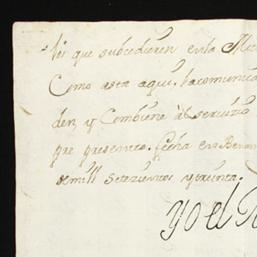 les que subcedieren en la
Como asta aqui.
den, y Combiene al servicio
que presente. fecha en
de mill setezientos y treinta.
yo el